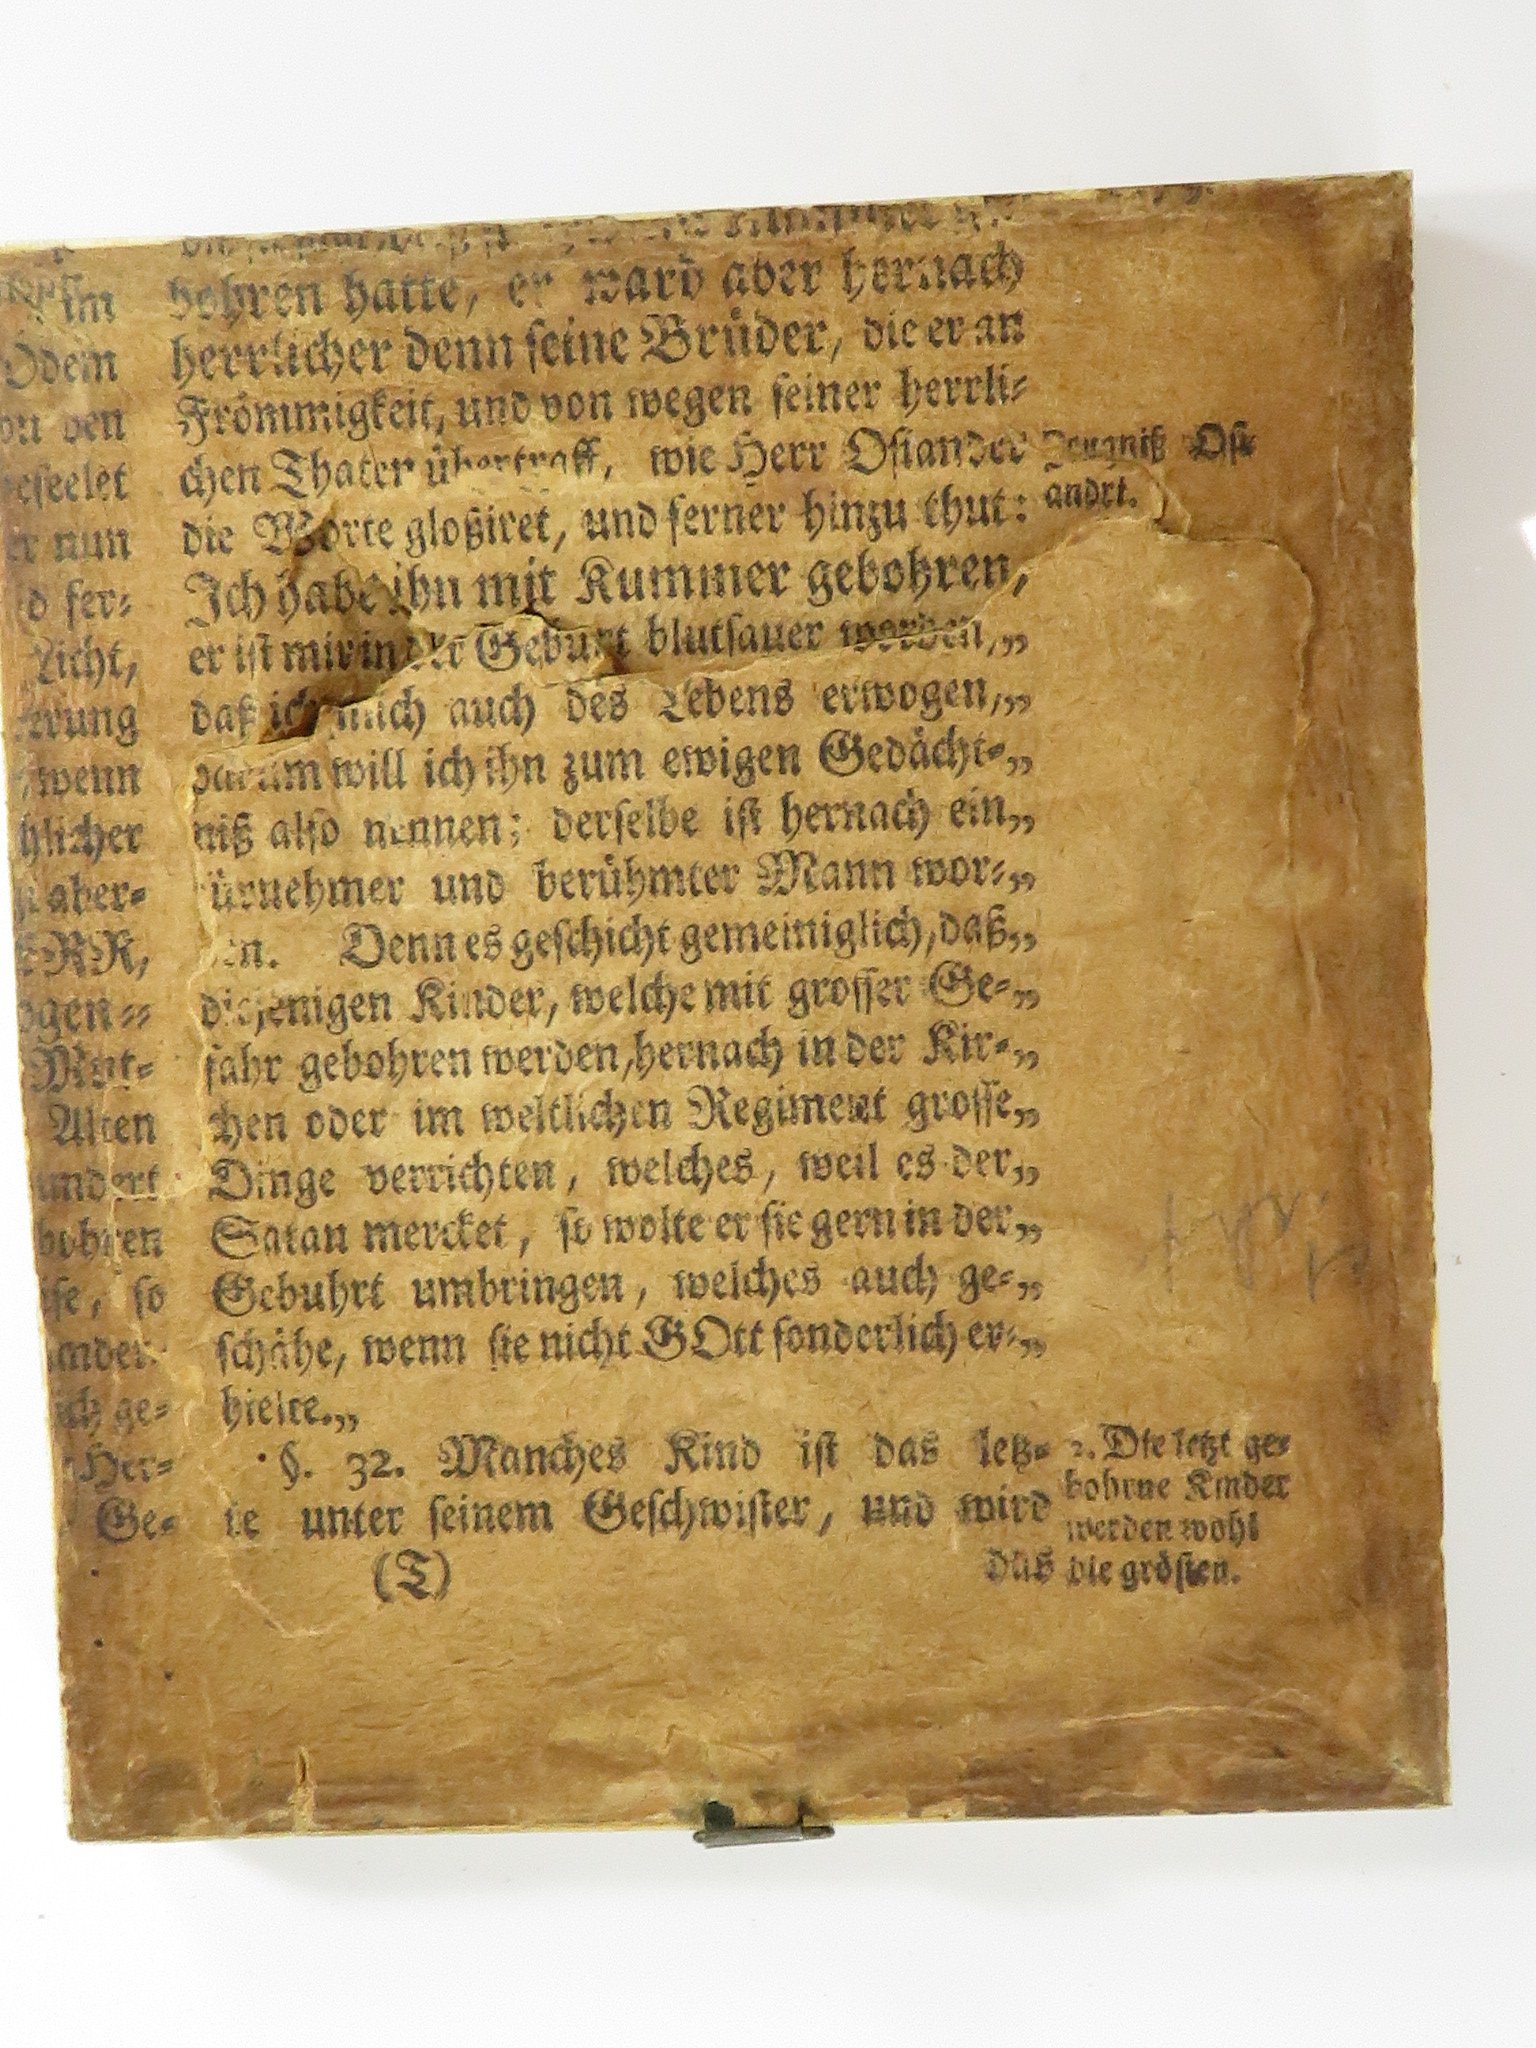 im
bohren hatte, er ward aber hernach
Odem
herrlicher denn seine Brüder, die er an
den
Frömmigkeit, und von wegen seiner herrli-
beseelet
chen Thaten übertraff, wie Herr Osiander
nun
die Worte gloßiret, und ferner hinzu thut:
fer-
Ich habe ihn mit Kummer gebohren,
Licht,
er ist mir in der Geburt blutsauer worden,„
erung
daß ich mich auch des Lebens erwogen,„
wenn
darum will ich ihn zum ewigen Gedächt-„
hlicher
niß also nennen; derselbe ist hernach ein„
aber-
fürnehmer und berühmter Mann wor-„
ERR,
den. Denn es geschicht gemeiniglich, daß„
ogen-
diejenigen Kinder, welche mit grosser Ge-„
Mut-
fahr gebohren werden, hernach in der Kir-„
Alten
chen oder im weltlichen Regiment grosse„
undert
Dinge verrichten, welches, weil es der„
bohren
Satan mercket, so wolte er sie gern in der„
so
Gebuhrt umbringen, welches auch ge-„
ander
schähe, wenn sie nicht GOtt sonderlich er-„
ich ge-
hielte.„
Her-
§. 32. Manches Kind ist das letz-
Ge-
te unter seinem Geschwister, und wird
(T)
das
Zeugniß Osi-
andri.
2. Die letzt ge-
bohrne Kinder
werden wohl
die grösten.